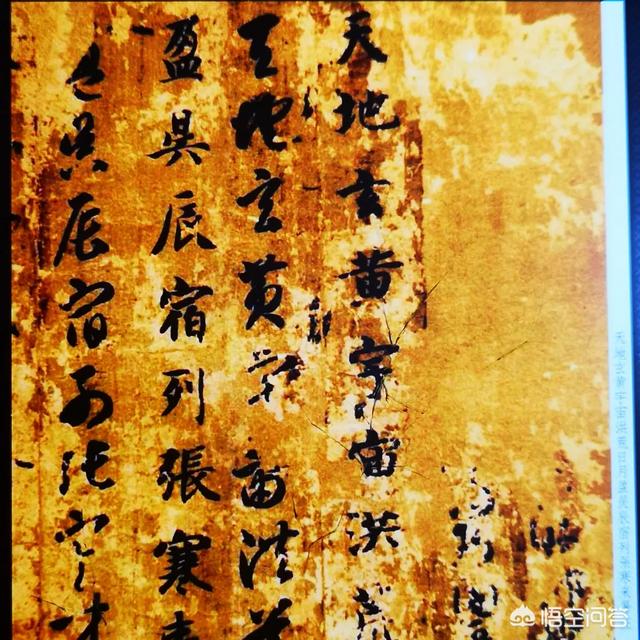 天地玄黄宇宙洪荒日月盈昃辰宿列張寒
天地玄黄宇宙洪荒
天地玄黄宇宙洪荒
盈昃辰宿列張寒来
盈昃辰宿列張寒来
悟空问答